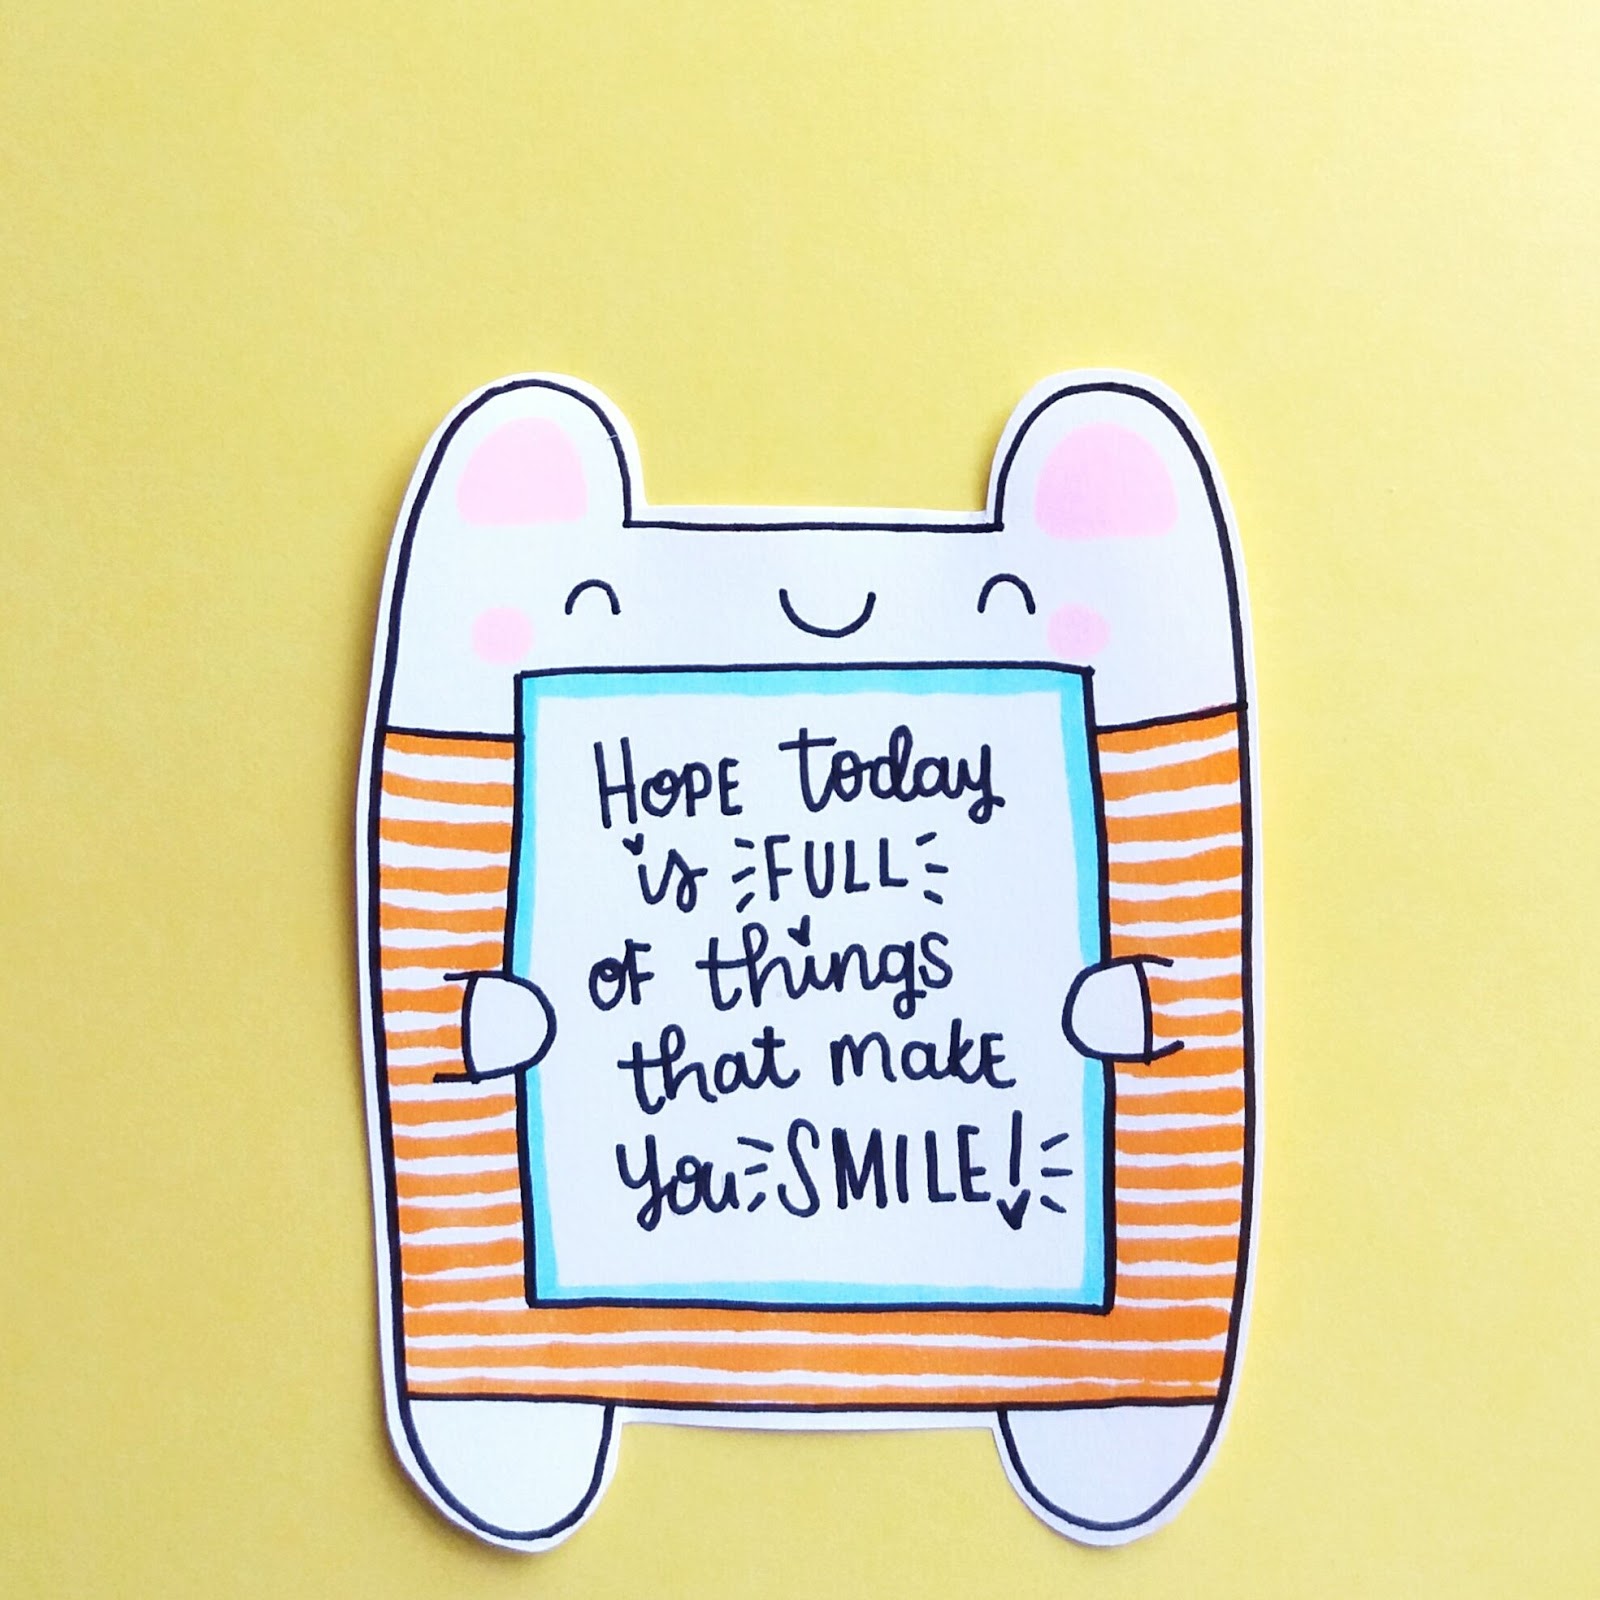 HOPE today
is FULL
of things
that make
you SMILE!